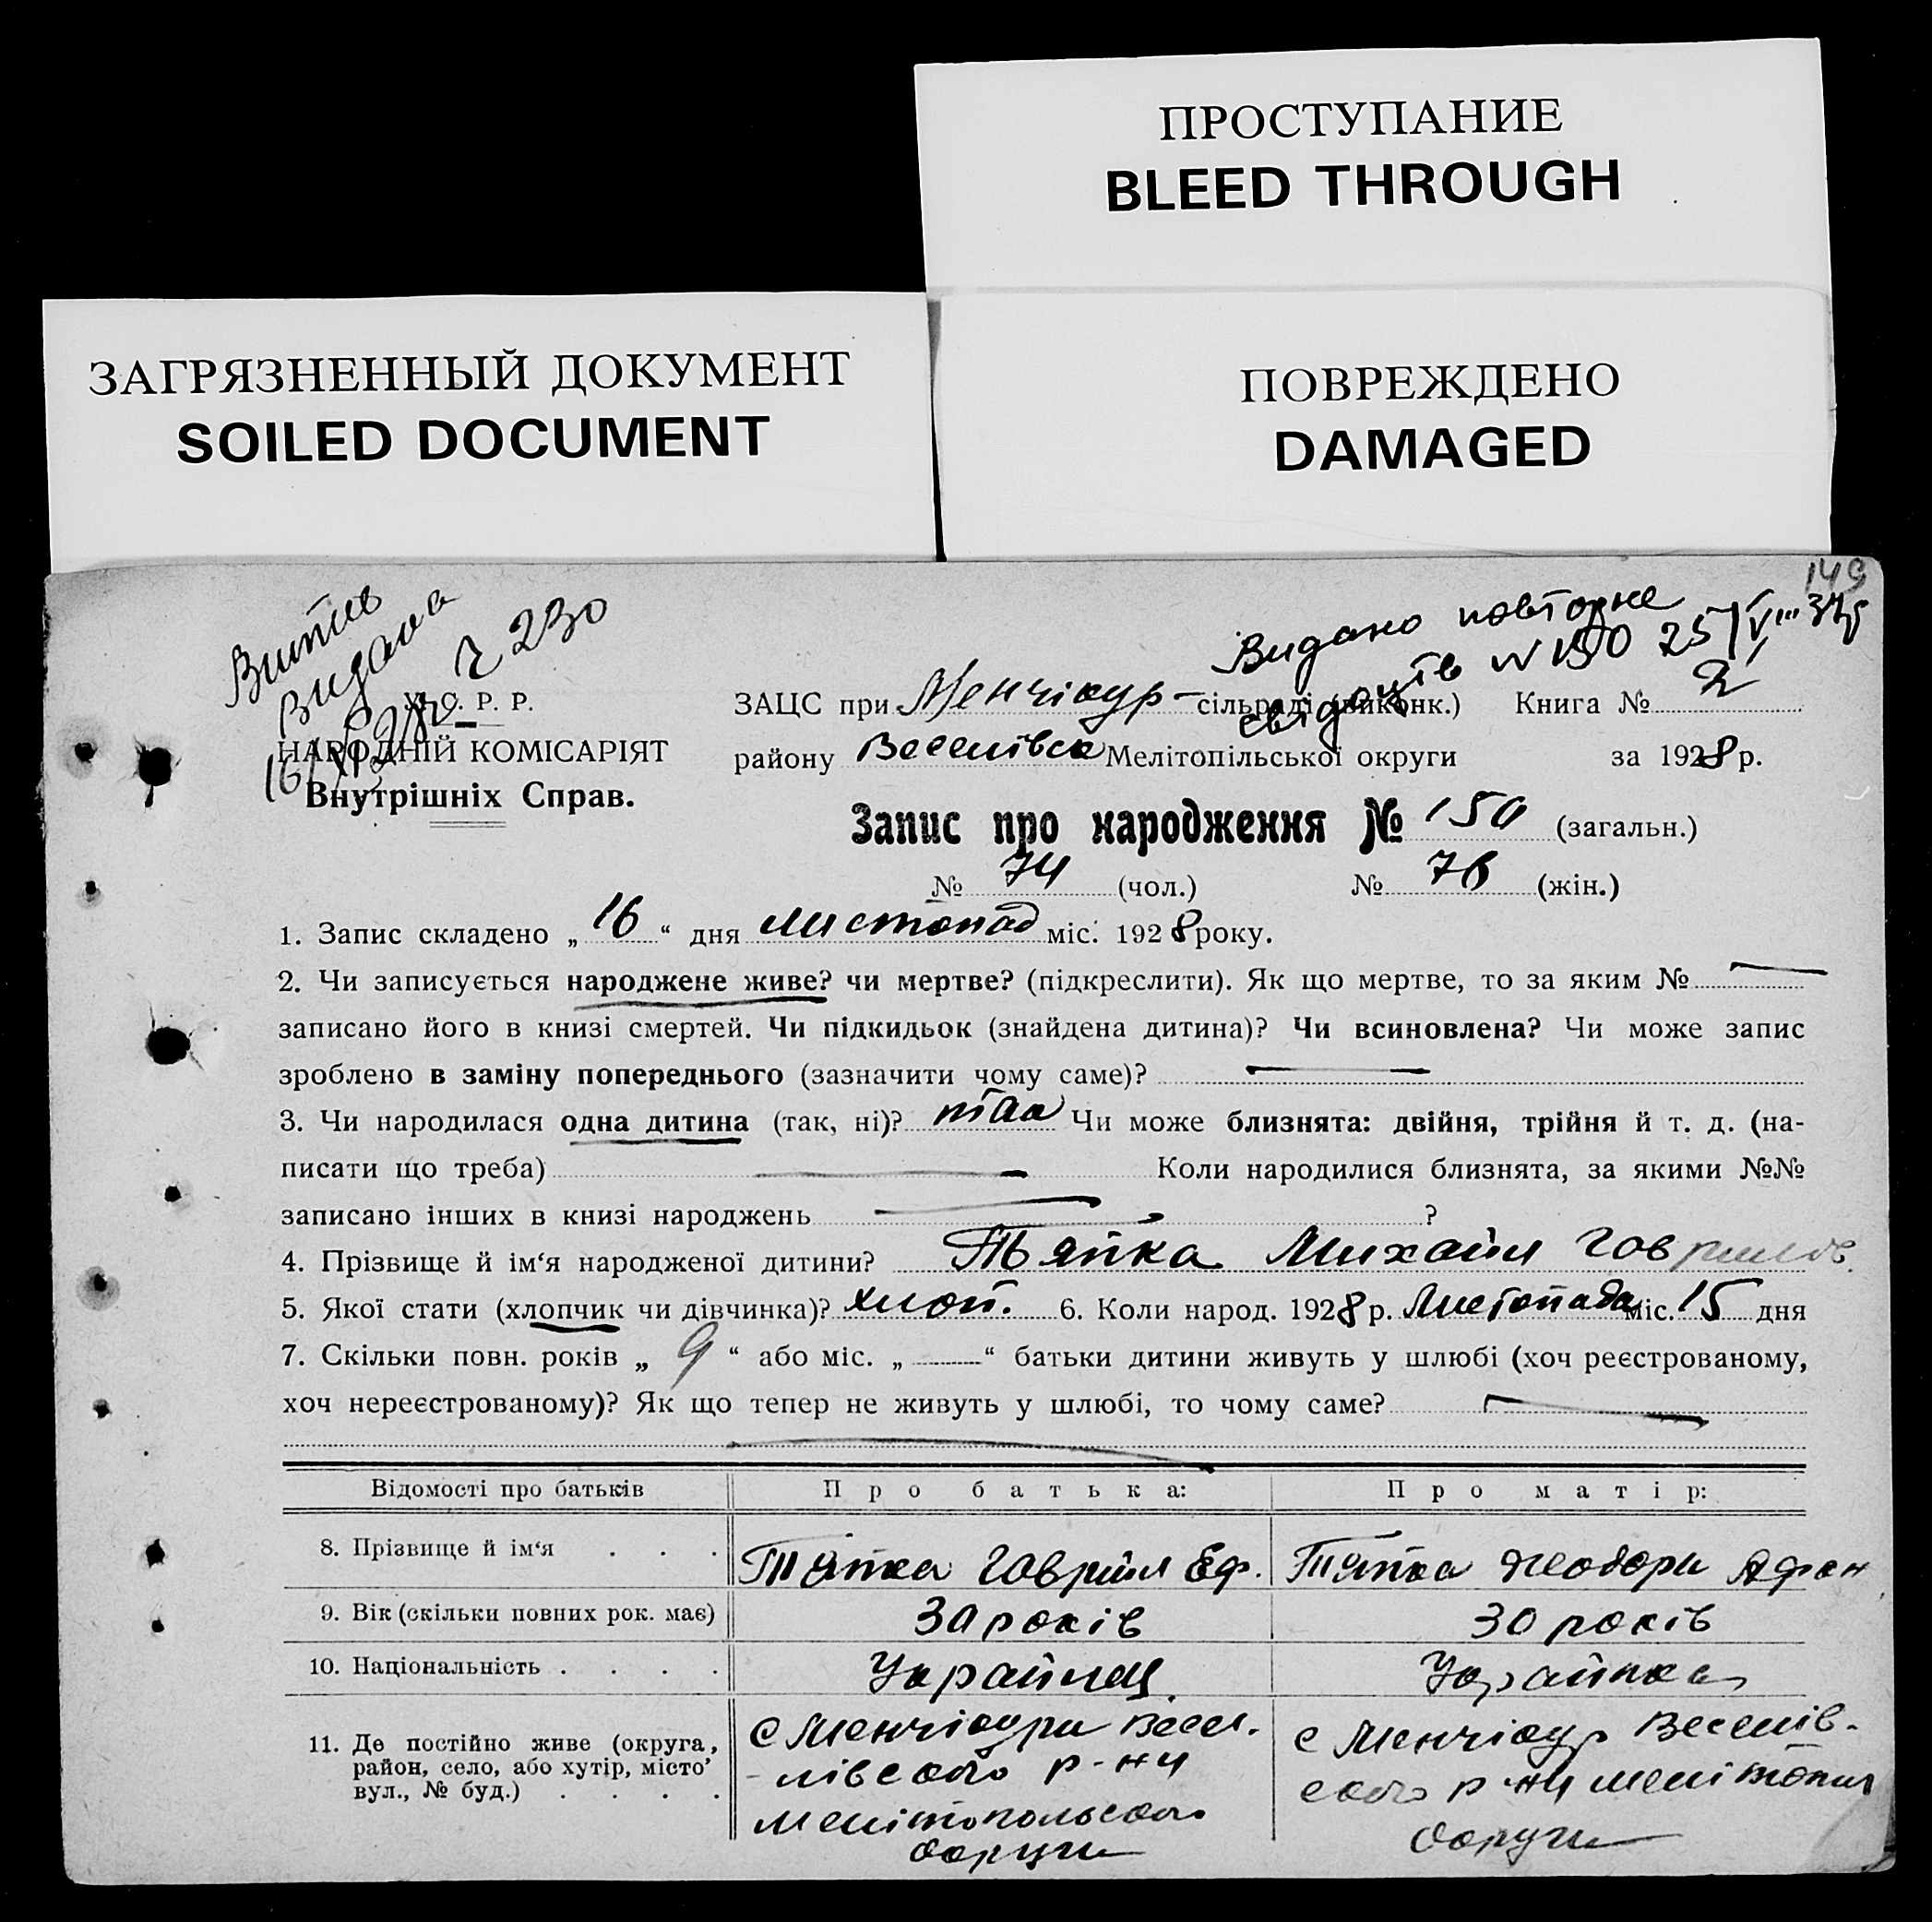 ПРОСТУПАНИЕ
BLEED THROUGH
ЗАГРЯЗНЕННЫЙ ДОКУМЕНТ
SOILED DOCUMENT
ПОВРЕЖДЕНО
DAMAGED
149
Витяг
видано
ч 230
Видано повторне
свідоцтв N 150 25/V
У. С. Р. Р.
НАРОДНІЙ КОМІСАРІЯТ
Внутрішніх Справ.
ЗАЦС при Менчікур- сільраді (виконк.) Книга № 2
району Веселівськ Мелітопільської округи за 1928 р.
Запис про народження № 150 (загальн.)
№ 74 (чол.) № 76 (жін.)
1. Запис складено „ 16 “ дня листопад міс. 1928 року.
2. Чи записується народжене живе? чи мертве? (підкреслити). Як що мертве, то за яким № —
записано його в книзі смертей. Чи підкидьок (знайдена дитина)? Чи всиновлена? Чи може запис
зроблено в заміну попереднього (зазначити чому саме)? —
3. Чи народилася одна дитина (так, ні)? так Чи може близнята: двійня, трійня й т. д. (на-
писати що треба) — Коли народилися близнята, за якими №№
записано інших в книзі народжень — ?
4. Прізвище й ім‘я народженої дитини? Тяпка Михайл Гаврилов.
5. Якої стати (хлопчик чи дівчинка)? хлоп. 6. Коли народ. 1928 р. Листопада міс. 15 дня
7. Скільки повн. років „ 9 “ або міс. „ — “ батьки дитини живуть у шлюбі (хоч реєстрованому,
хоч нереєстрованому)? Як що тепер не живуть у шлюбі, то чому саме? —
Відомості про батьків Про батька: Про матір:
8. Прізвище й ім‘я . . . Тяпка Гаврийл Еф. Тяпка Теодори Афан
9. Вік (скільки повних рок. має) 30 років 30 років
10. Національність . . . . Українец. Українка
11. Де постійно живе (округа, район, село, або хутір, місто’ вул., № буд.) . . . .
с Менчікури Весе-
-лівсько р-ну
Мелітопольсько
округи
с Менчікур Веселів-
сько р-ну Мелітопил
округи